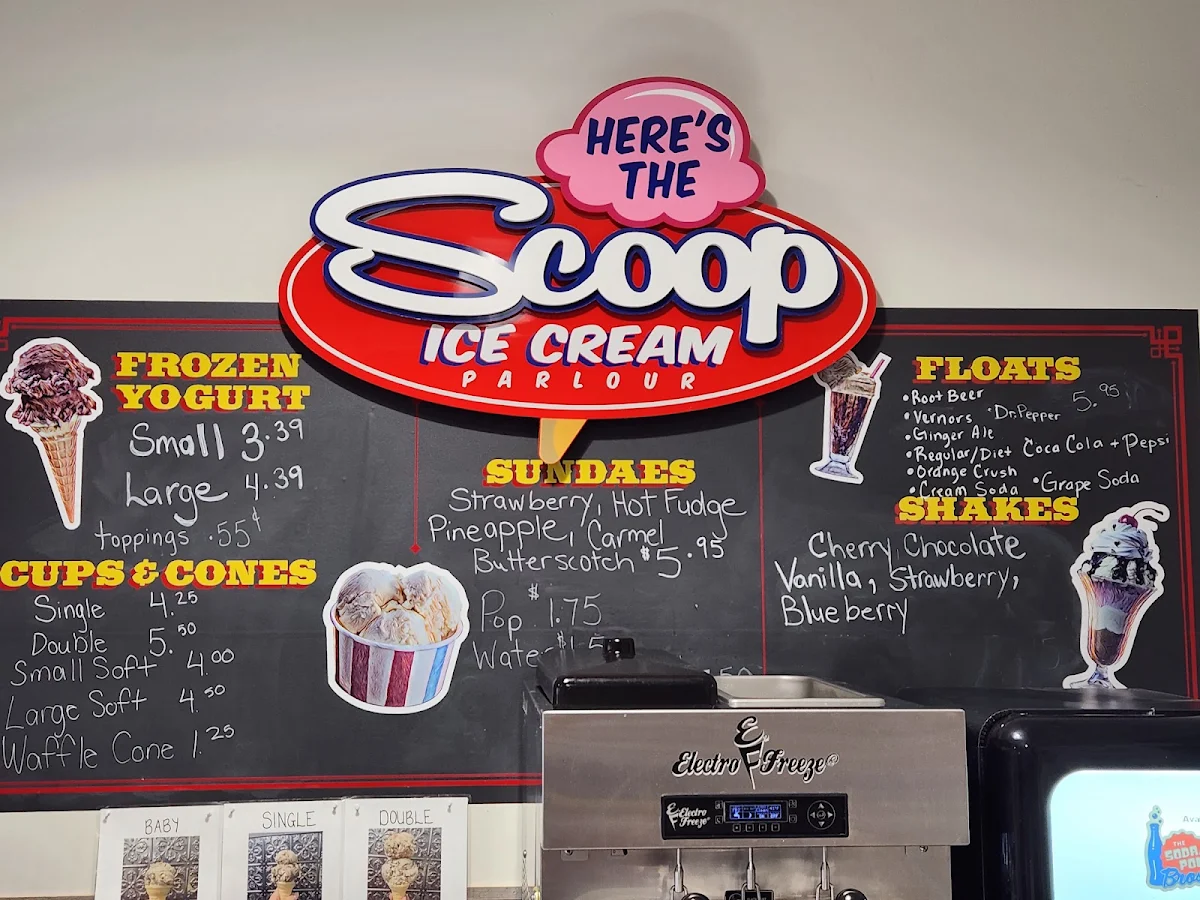 HERE'S
THE
Scoop
ICE CREAM
PARLOUR
FROZEN
YOGURT
Small 3.39
Large 4.39
toppings .55¢
CUPS & CONES
Single 4.25
Double 5.50
Small Soft 4.00
Large Soft 4.50
Waffle Cone 1.25
SUNDAES
Strawberry, Hot Fudge
Pineapple, Carmel
Butterscotch $5.95
Pop $1.75
Water
FLOATS
•Root Beer 5.95
•Vernors •Dr.Pepper
•Ginger Ale
•Regular/Diet Coca Cola + Pepsi
•Orange Crush
•Cream Soda •Grape Soda
SHAKES
Cherry, Chocolate
Vanilla, Strawberry,
Blueberry
BABY
SINGLE
DOUBLE
Electro Freeze
Electro
Freeze
THE
SODA